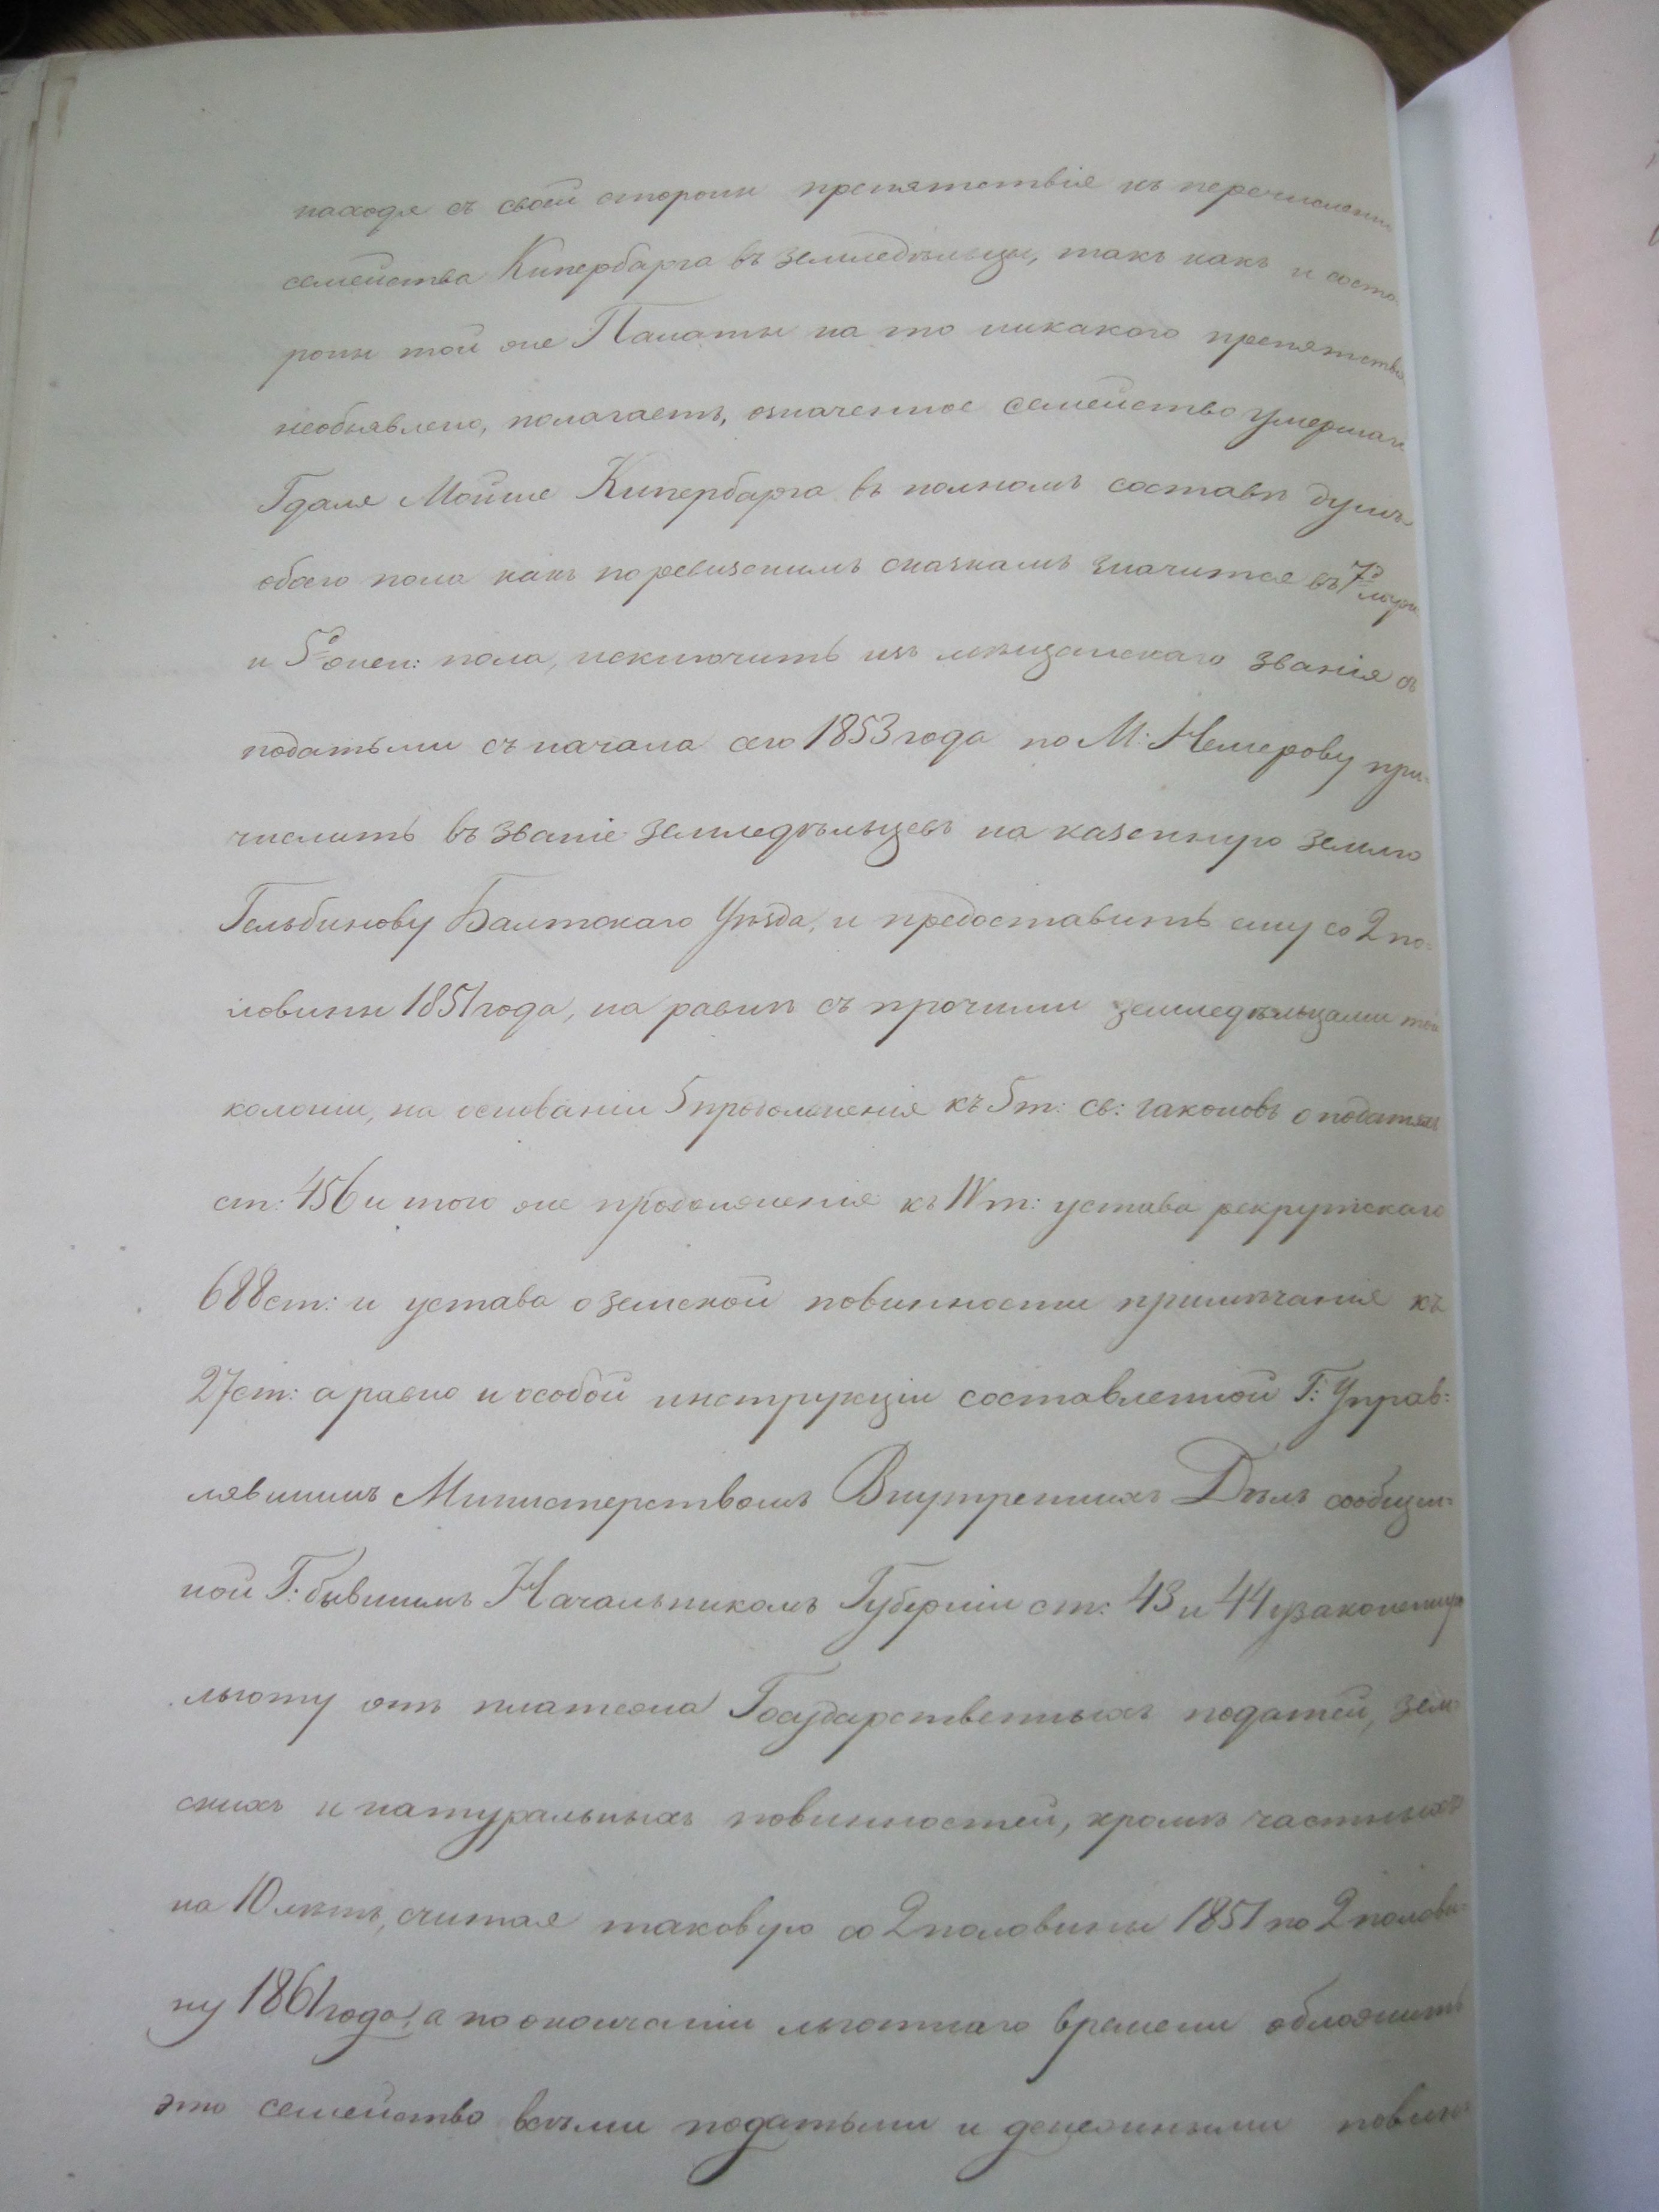 находя съ своей стороны препятствіе къ перечисленію
семейства Кипербарга въ земледѣльцы, такъ какъ и состо
роны той же Палаты на то никакого препятствія
необъявлено, полагаетъ, означенное семейство умершаго
Гдаля Мойше Кипербарга въ полномъ составѣ душъ
обоего пола какъ поревизскимъ сказкамъ значится въ 7 мужс
и 5 жен: пола, исключить изъ мѣщанскаго званія съ
податьми съ начала сего 1853 года по М: Немерову при-
числить въ званіе земледѣльцевъ на казенную землю
Гельбинову Балтскаго Уѣзда, и предоставить ему со 2 по-
ловины 1851 года, на равнѣ съ прочими земледѣльцами той
колоніи, на основаніи 5 продолженія къ 5 т: св: законовъ о податяхъ
ст: 456 и того же продолженія къ IV т: устава рекрутскаго
688 ст: и устава о земской повинности примѣчанія къ
27 ст: а равно и особой инструкціи составленной Г: Управ-
лявшимъ Министерствомъ Внутреннихъ Дѣлъ сообщен-
ной Г: бывшимъ Начальникомъ Губерніи ст: 43 и 44 узаконенную
льготу отъ платежа Государственныхъ податей, зем
скихъ и натуральныхъ повинностей, кромѣ частныхъ
на 10 лѣтъ, считая таковую со 2 половины 1851 по 2 полови-
ну 1861 года, а по окончаніи льготнаго времени обложить
это семейство всѣми податьми и денежными повин